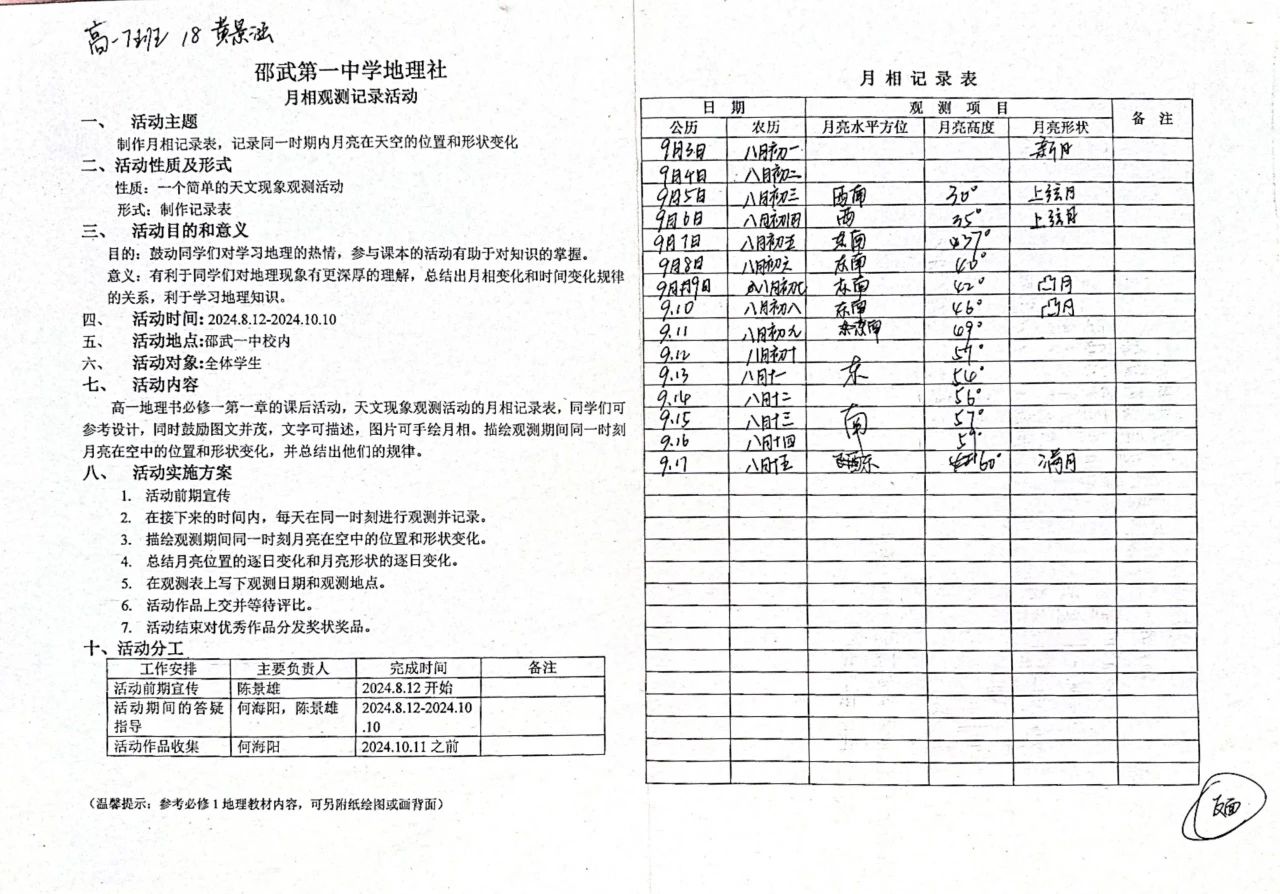 高一7班 18 黄景涵
邵武第一中学地理社
月相观测记录活动
一、 活动主题
制作月相记录表，记录同一时期内月亮在天空的位置和形状变化
二、活动性质及形式
性质：一个简单的天文现象观测活动
形式：制作记录表
三、 活动目的和意义
目的：鼓动同学们对学习地理的热情，参与课本的活动有助于对知识的掌握。
意义：有利于同学们对地理现象有更深厚的理解，总结出月相变化和时间变化规律
的关系，利于学习地理知识。
四、 活动时间: 2024.8.12-2024.10.10
五、 活动地点:邵武一中校内
六、 活动对象:全体学生
七、 活动内容
高一地理书必修一第一章的课后活动，天文现象观测活动的月相记录表，同学们可
参考设计，同时鼓励图文并茂，文字可描述，图片可手绘月相。描绘观测期间同一时刻
月亮在空中的位置和形状变化，并总结出他们的规律。
八、 活动实施方案
1. 活动前期宣传
2. 在接下来的时间内，每天在同一时刻进行观测并记录。
3. 描绘观测期间同一时刻月亮在空中的位置和形状变化。
4. 总结月亮位置的逐日变化和月亮形状的逐日变化。
5. 在观测表上写下观测日期和观测地点。
6. 活动作品上交并等待评比。
7. 活动结束对优秀作品分发奖状奖品。
十、活动分工
工作安排 主要负责人 完成时间 备注
活动前期宣传 陈景雄 2024.8.12 开始
活动期间的答疑 何海阳，陈景雄 2024.8.12-2024.10
指导 .10
活动作品收集 何海阳 2024.10.11 之前
（温馨提示：参考必修 1 地理教材内容，可另附纸绘图或画背面）
月相记录表
日 期 观 测 项 目 备 注
公历 农历 月亮水平方位 月亮高度 月亮形状
9月3日 八月初一 新月
9月4日 八月初二
9月5日 八月初三 西南 30° 上弦月
9月6日 八月初四 西 35° 上弦月
9月7日 八月初五 东南 37°
9月8日 八月初六 东南 40°
9月9日 八月初七 东南 42° 凸月
9.10 八月初八 东南 46° 凸月
9.11 八月初九 东南 49°
9.12 八月初十
9.13 八月十一 东 54°
9.14 八月十二 56°
9.15 八月十三 南 57°
9.16 八月十四 59°
9.17 八月十五 东 60° 满月
反面